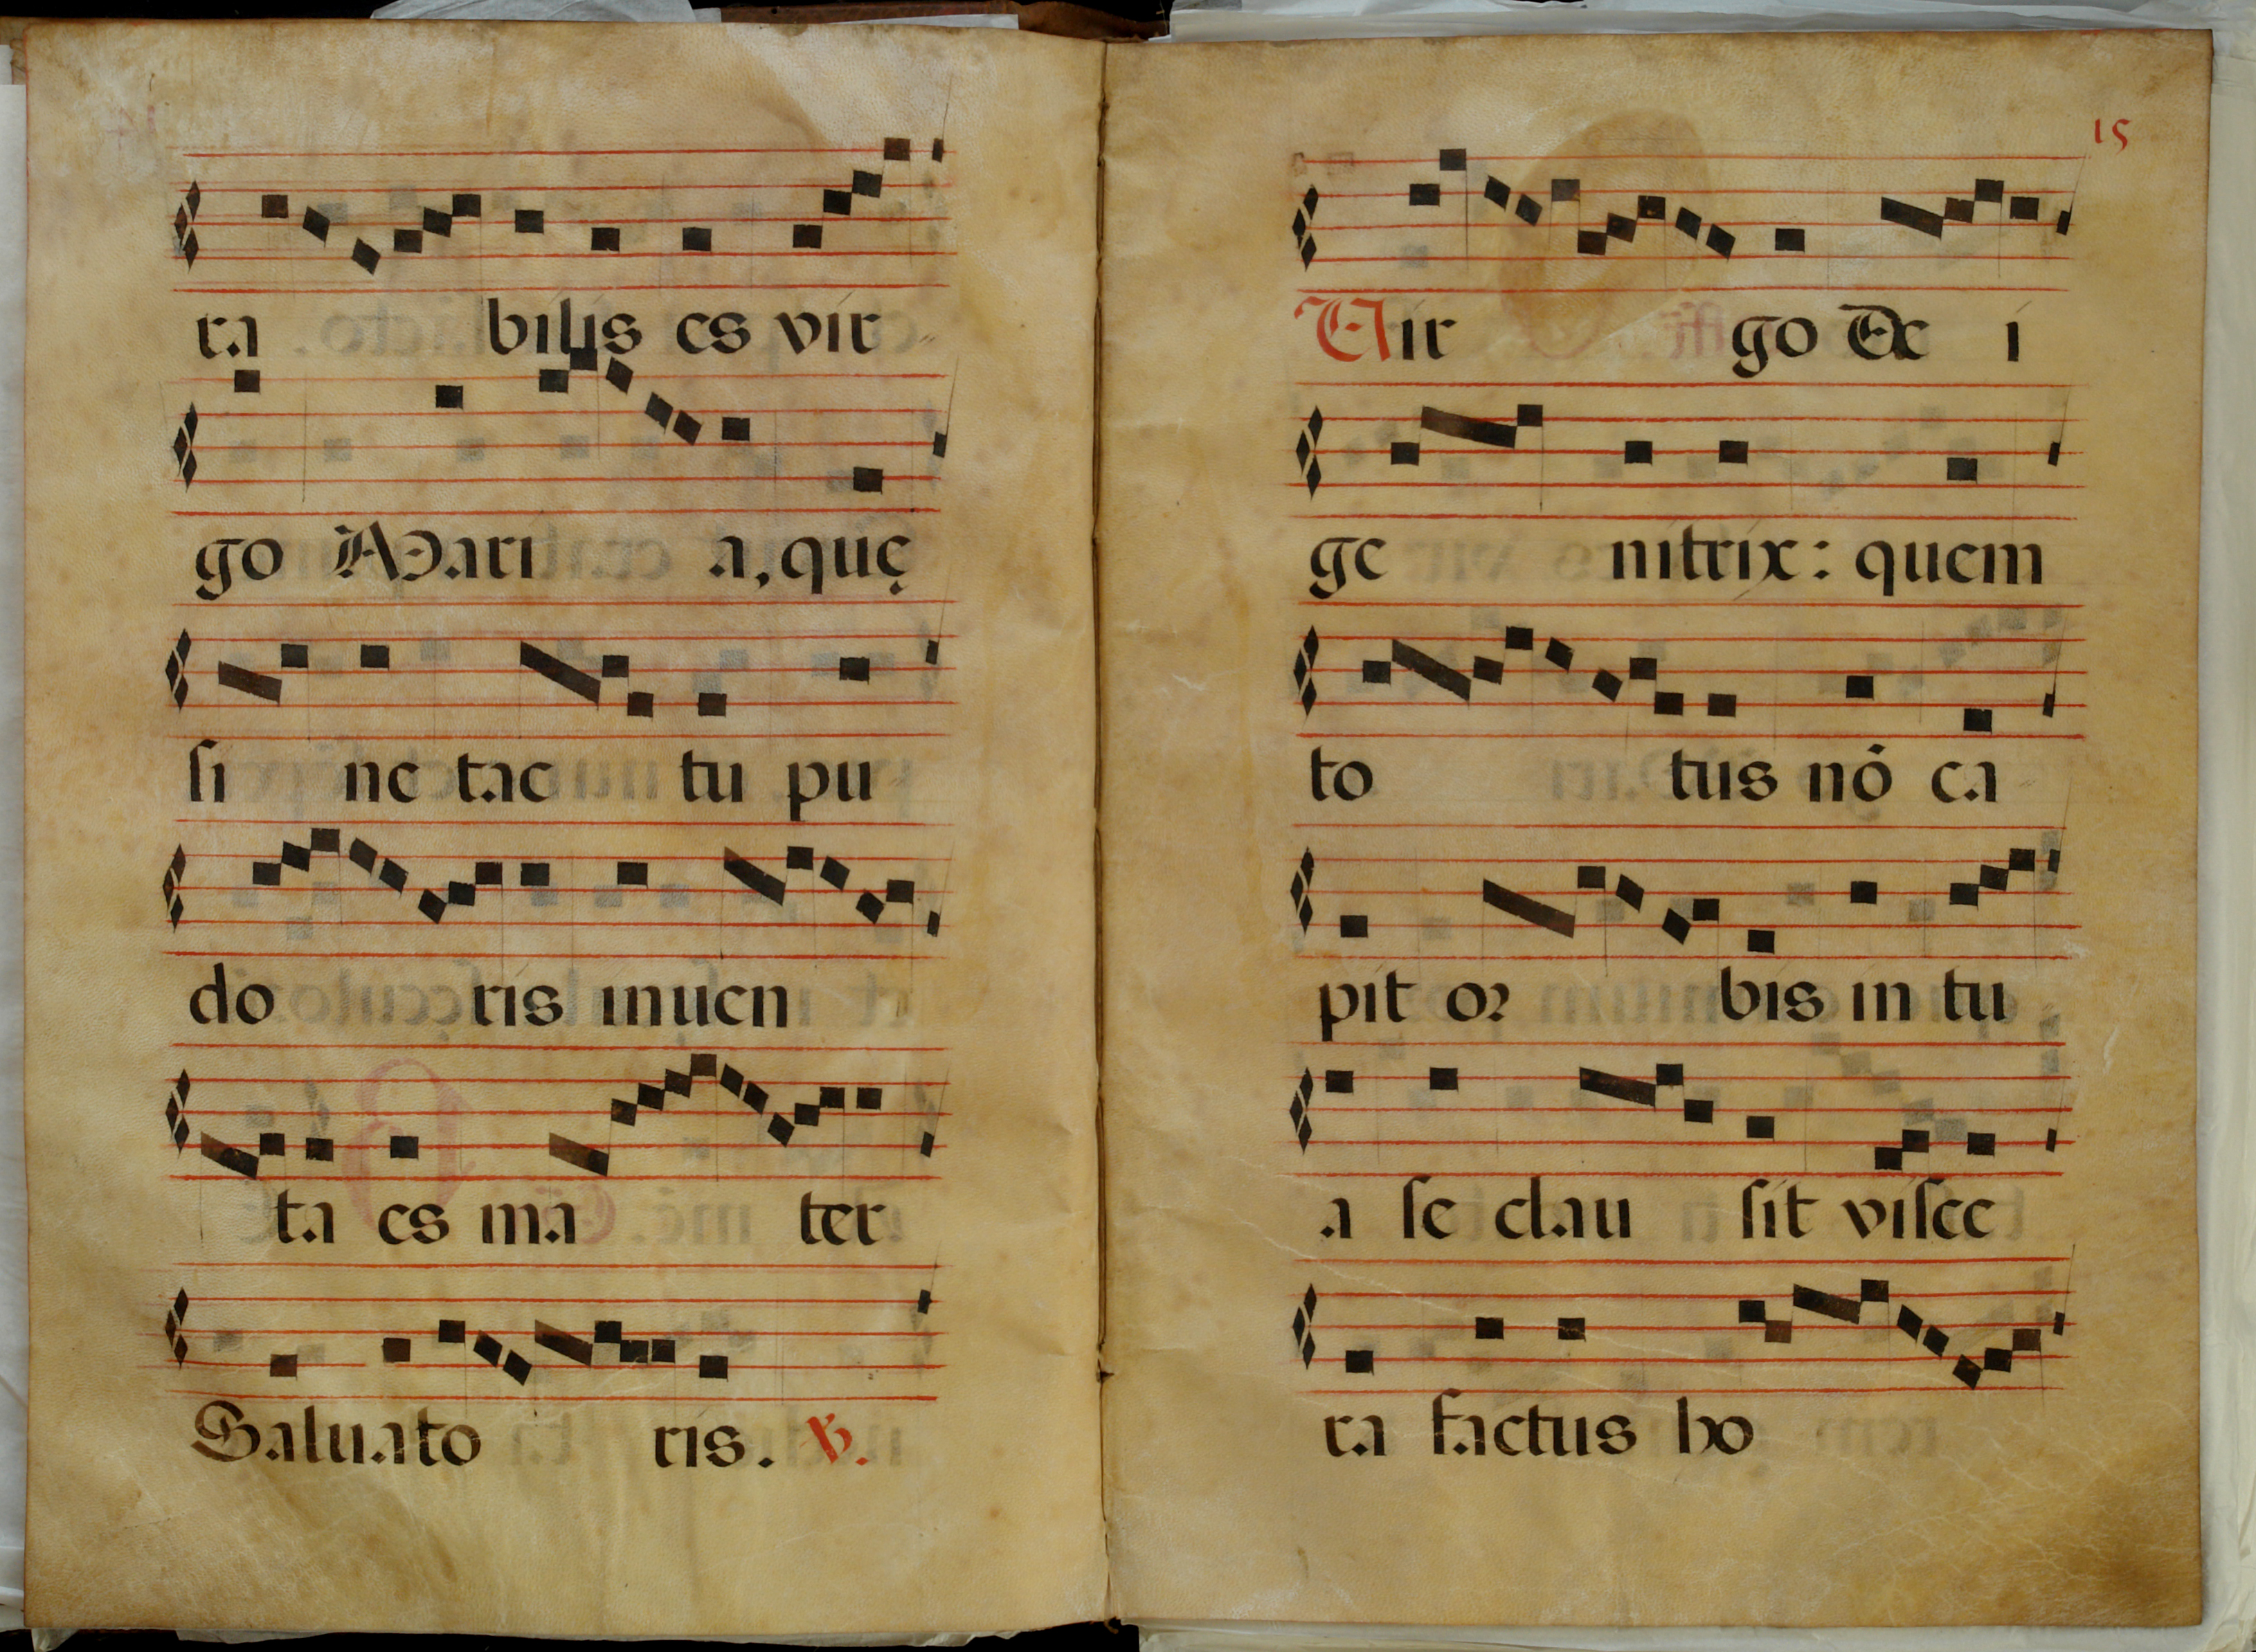 ra bilis es vir-
go Mari a, quę
si ne tac tu pu-
do ris inuen
ta es ma ter
Saluato ris. ℣.
15
Vir go De i
ge nitrix: quem
to tus nō ca-
pit or bis in tu
a se clau sit visce
ra factus ho